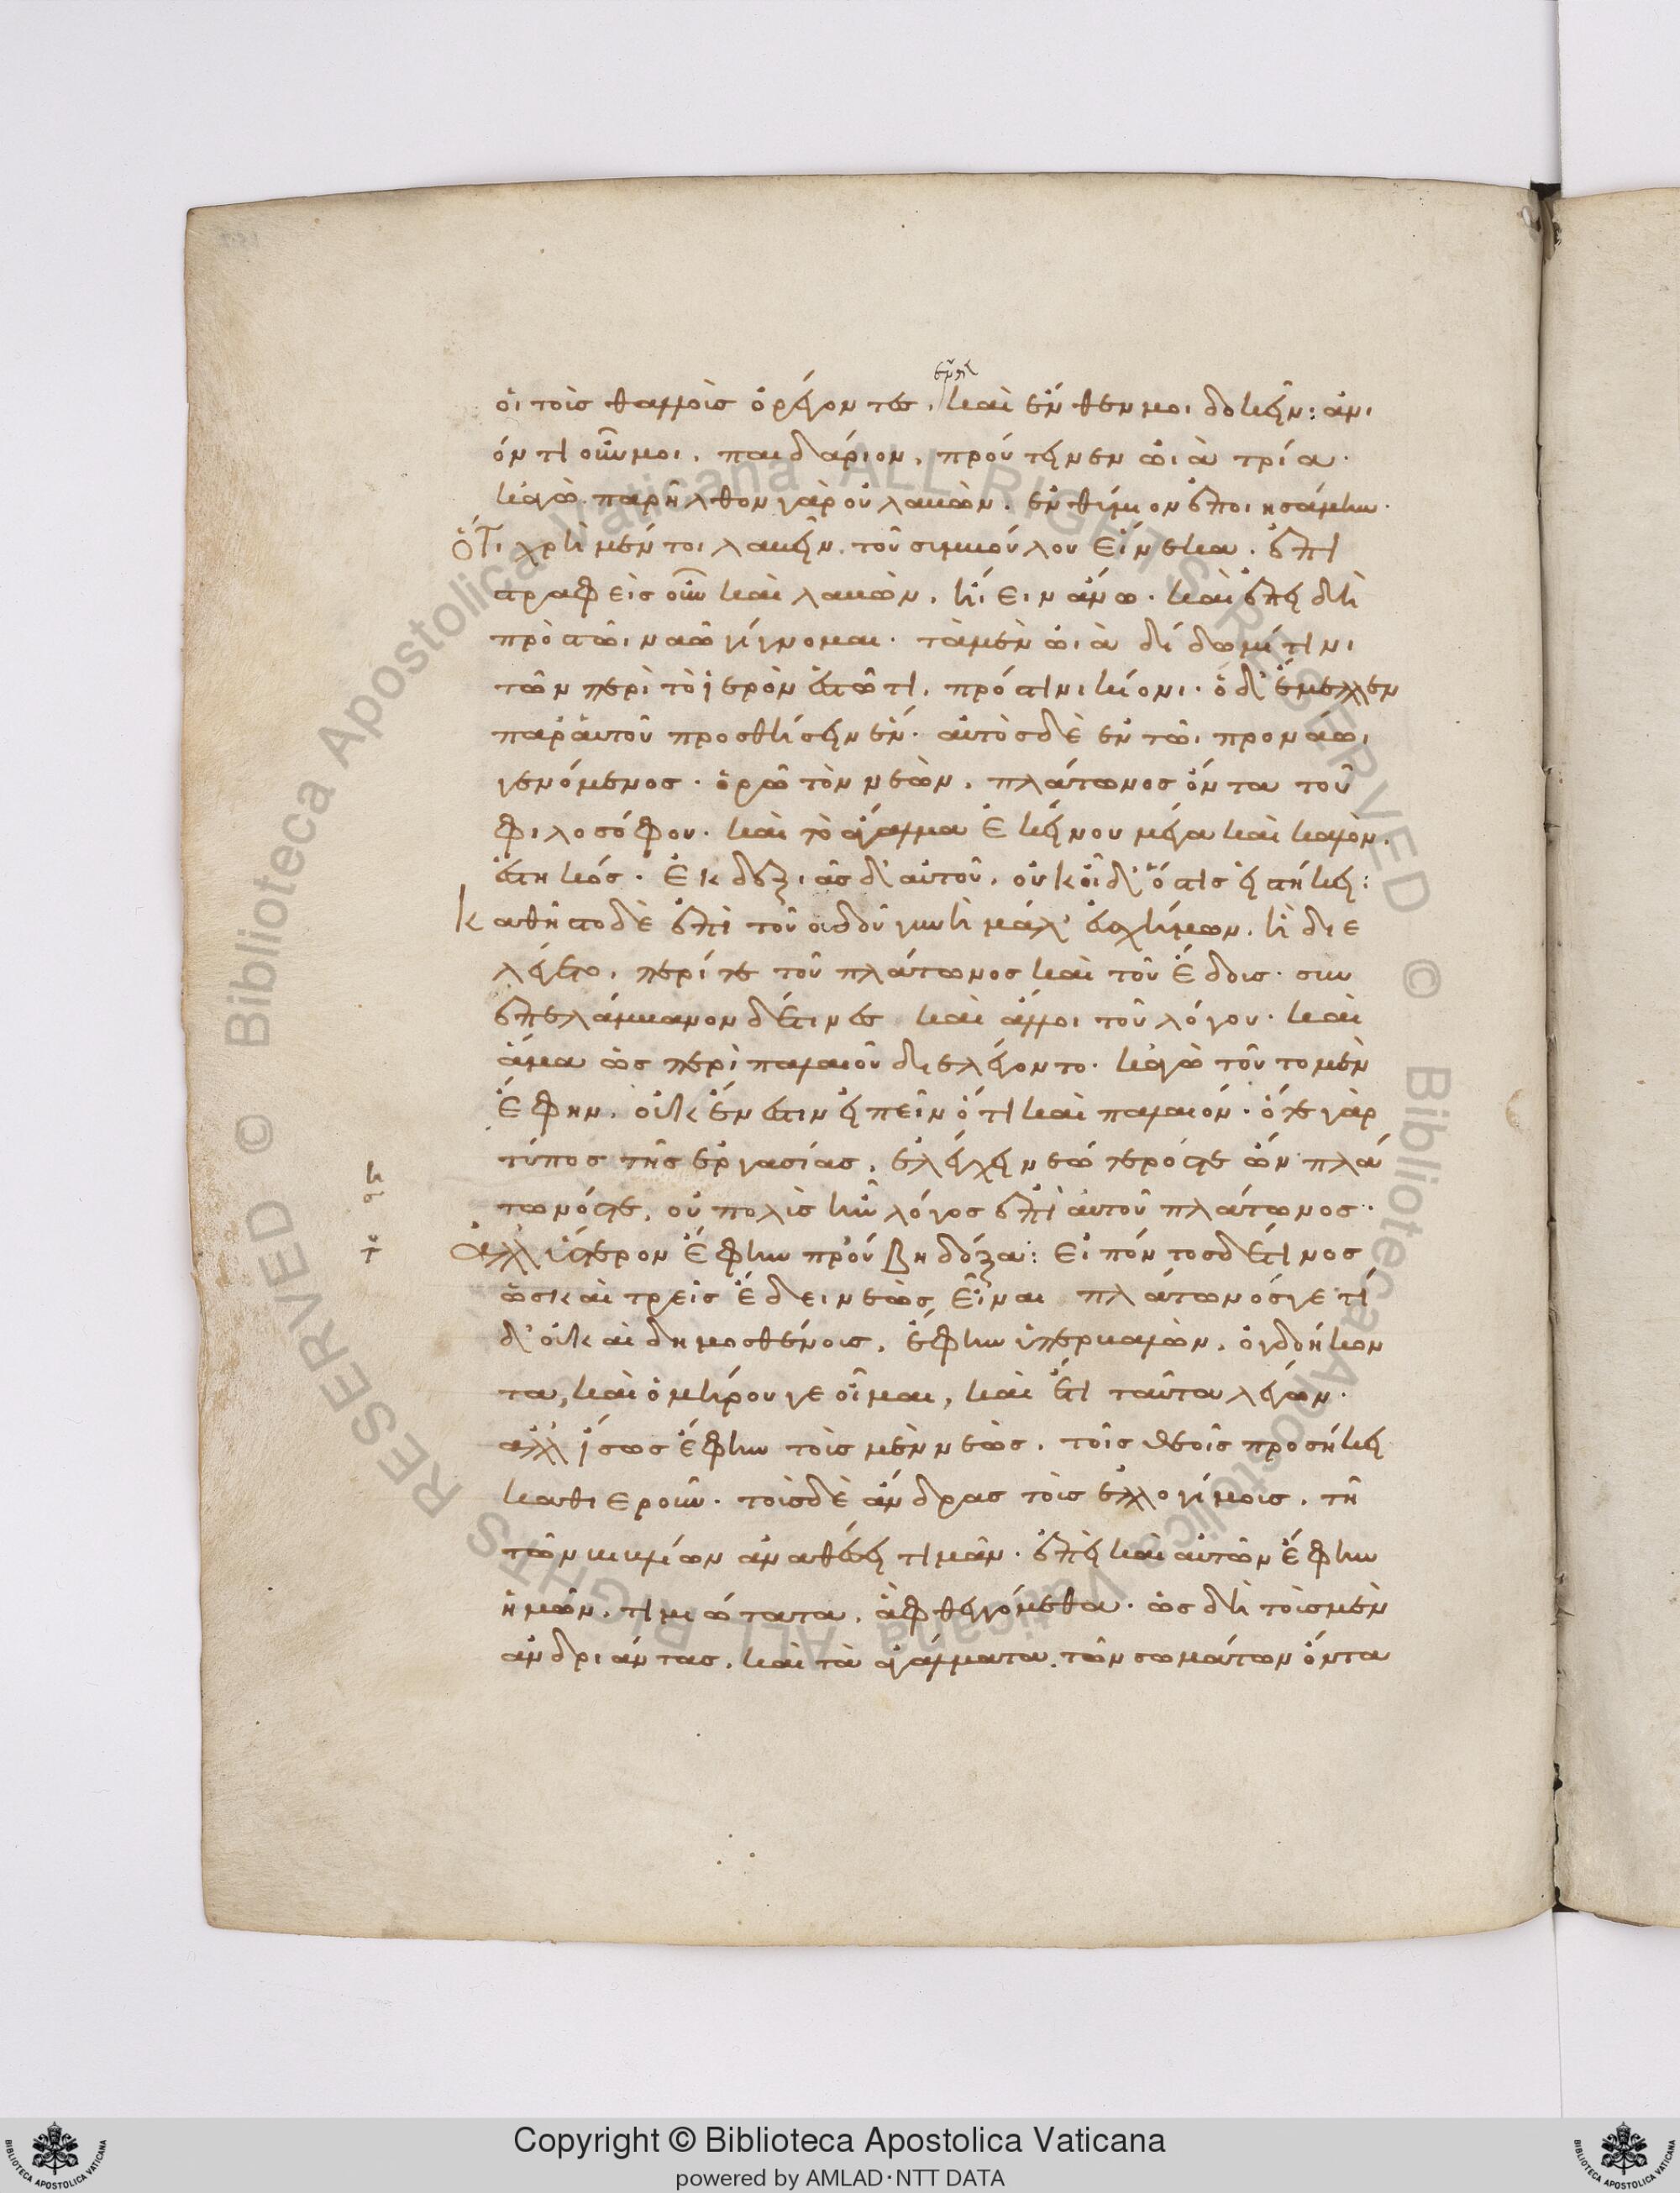 ἐμπί
οἱ τοὺς θαλλοὺς ὀρέγοντες. καὶ ἐν θεν μοι δοκεῖν: ἀνι
όντι οὖν μοι. παιδάριον. προύτεινεν ὠιὰ τρία·
κἀγὼ. παρῆλθον γὰρ οὐ λαβὼν. ἐνθύμιον ἐποιησάμην·
ὅτι χρὴ μέντοι λαβεῖν. τοῦ συμβούλου εἵνεκα. ἐπι
στραφεὶς οὖν καὶ λαβὼν. ἤιειν ἄνω· καὶ ἐπεὶ δὴ
πρὸς τῶι ναῶ γίγνομαι· τὰ μὲν ὠιὰ δίδωμί τινι
τῶν περὶ τὸ ἱερὸν ἑστῶτι. πρός τινι κίονι· ὁ δ' ἔμελλεν
παρ' ἑαυτοῦ προσθήσειν ἕν· αὐτὸς δὲ ἐν τῶι προνάωι
γενόμενος· ὁρῶ τὸν νεὼν. πλάτωνος ὄντα τοῦ
φιλοσόφου· καὶ τὸ ἄγαλμα ἐκείνου μέγα καὶ καλὸν.
ἑστηκός· ἐκ δεξιᾶς δ' αὐτοῦ. οὐκ οἶδ' ὅστις εἱστήκει:
καθῆστο δὲ ἐπὶ τοῦ οὐδοῦ γυνὴ μάλ' εὐσχήμων. ἣ διε
λέγετο. περί τε τοῦ πλάτωνος καὶ τοῦ ἕδους· συν
επελάμβανον δέ τινες καὶ ἄλλοι τοῦ λόγου· καὶ
ἅμα ὡς περὶ παλαιοῦ διελέγοντο· κἀγὼ τοῦτο μὲν
ἔφην. οὐκ ἔνεστιν εἰπεῖν ὅτι καὶ παλαιόν· ὅ τε γὰρ
τύπος τῆς ἐργασίας. ἐλέγχει νεώτερός τε ὢν πλά
τωνός τε. οὐ πολὺς ἦν λόγος ἐπ' αὐτοῦ πλάτωνος·
ἀλλ' ὕστερον ἔφην προύβη δόξα: εἰπόντος δέ τινος
ὡς καὶ τρεῖς ἔδει νεὼς εἶναι πλάτωνός γε τί
δ' οὐκαὶ δημοσθένους. ἔφην ὑπερβαλὼν. ὀγδοήκον
τα, καὶ ὁμήρου γε οἶμαι, καὶ ἔτι ταῦτα λέγων·
ἀλλ' ἴσως ἔφην τοὺς μὲν νεὼς. τοῖς θεοῖς προσήκει
καθιεροῦν· τοὺς δὲ ἄνδρας τοὺς ἐλλογίμους. τῆ
τῶν βιβλίων ἀναθέσει τιμᾶν· ἐπεὶ καὶ αὐτῶν ἔφην
ἡμῶν. τιμιώτατα. ἃ φθεγγόμεθα· ὡς δὴ τοὺς μὲν
ἀνδριάντας. καὶ τὰ ἀγάλματα. τῶν σωμάτων ὄντα
Copyright © Biblioteca Apostolica Vaticana
powered by AMLAD·NTT DATA